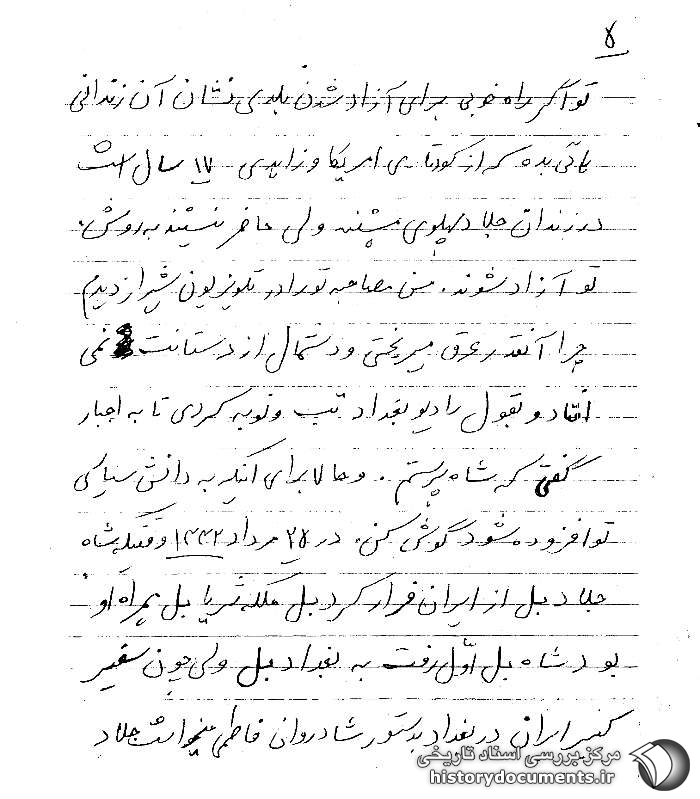 ۵
تو اگر راه خوبی برای آزاد شدن بلدی نشان آن زندانی
هائی بده که از کودتای امریکا و زاهدی ۱۷ سال است
در زندان جلاد پهلوی هستند ولی حاضر نیستند به روش
تو آزاد شوند. من مصاحبه تو را در تلویزیون شیراز دیدم
چرا آنقدر عرق میریختی و دستمال از دستانت نمی
افتاد و بقول رادیو بغداد تب و نوبه کردی تا به اجبار
گفتی که شاه پرستم. و حالا برای اینکه به دانش سیاسی
تو افزوده شود گوش کن. در ۲۵ مرداد ۱۳۳۲ وقتیکه شاه
جلاد بل از ایران فرار کرد بل ملکه ثریا بل همراه او
بود شاه بل اول رفت به بغداد بل ولی چون سفیر
کبیر ایران در بغداد بدستور شادروان فاطمی میخواست جلاد
مرکز بررسی اسناد تاریخی
historydocuments.ir